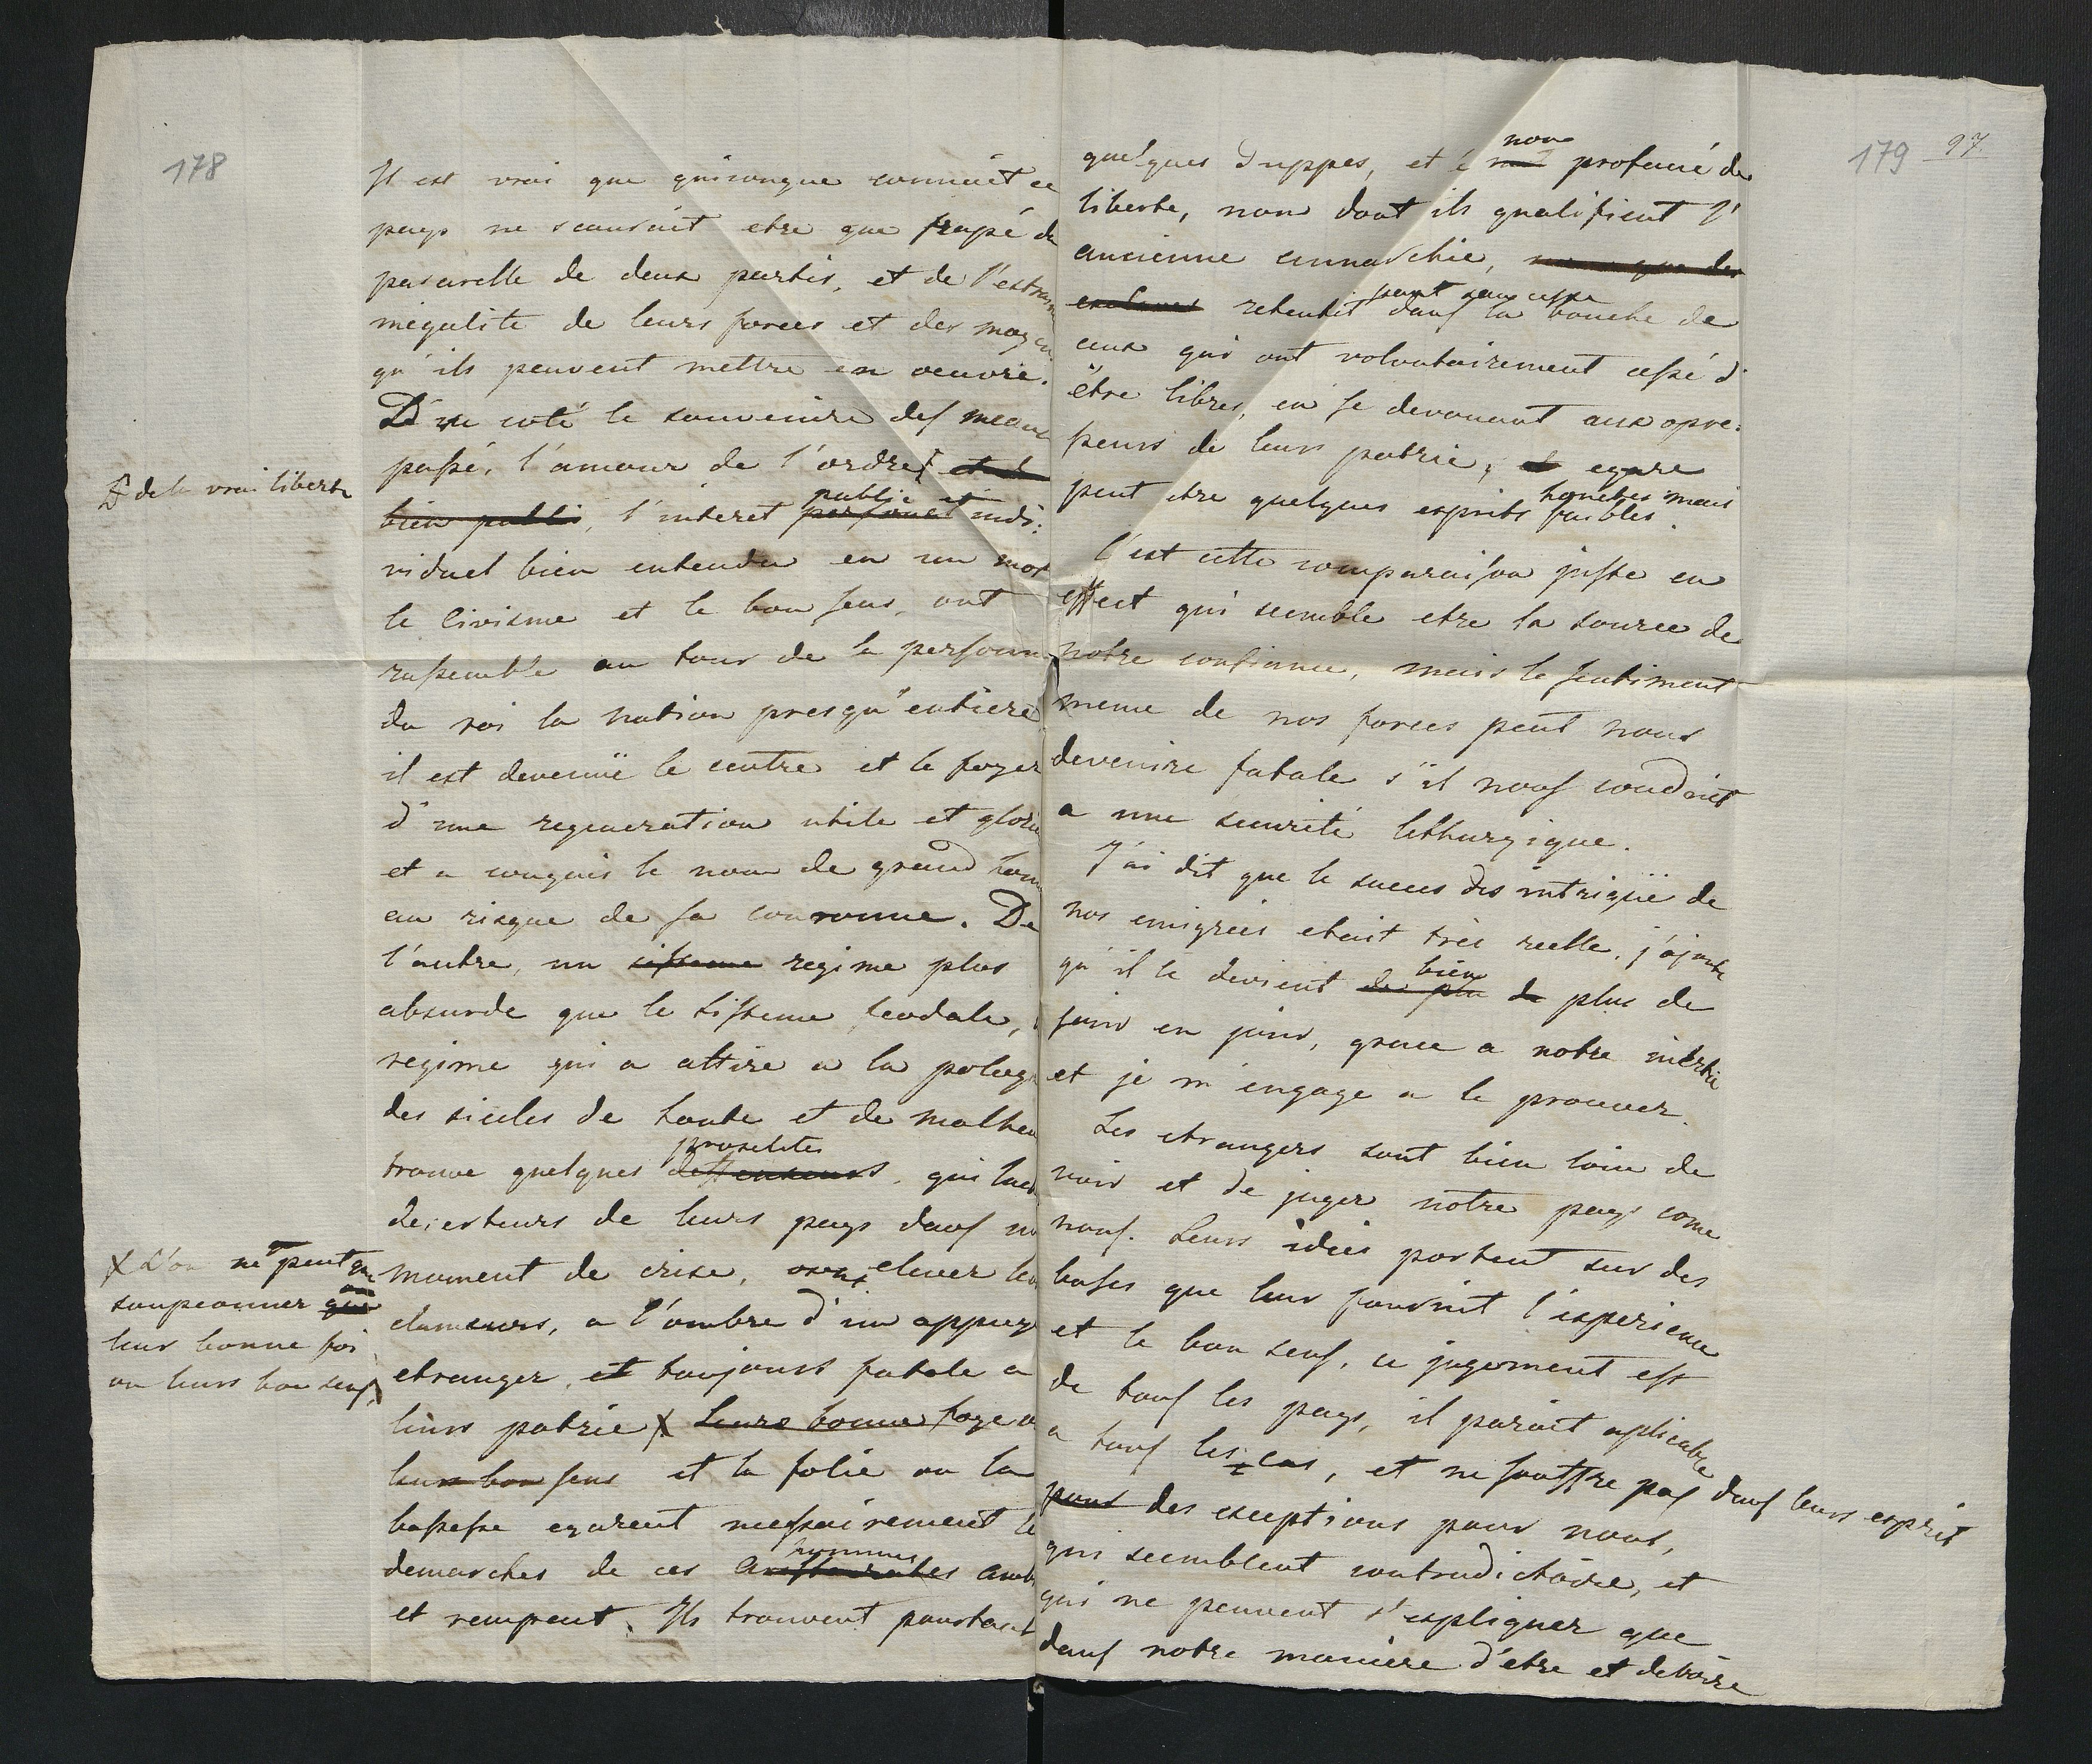 178
Il est vrai que quiconque connait ce
pays ne scauroit etre que frapé du
pararelle de deux partis, et de l'extrem
inegalité de leurs forces et des moyen
qu'ils peuvent mettre en oeuvre.
D'un coté le souvenire des meaux
passé, l'amour de l'ordre, et du
# de la vrai liberté
bien public, l'interet personel public et indi:
viduel bien entendu en un mot
le civisme et le bon sens, ont
rassemblé au tour de la personne
du roi la nation presqu'entiere
il est devenüe le centre et le foyer
d'une regeneration utile et glorie
et a conquis le nom de grand hom
au risque de sa couronne. De
l'autre, un sisteme regime plus
absurde que le sisteme feodale,
regime qui a attiré a la pologn
des siecles de honte et de malheu
trouve quelques deffenseurs proselites, qui
deserteurs de leurs pays dans un
moment de crise, osent elever leu
clameurs, a l'ombre d'un appuy
etranger, et toujours fatale a
leurs patrie X Leurs bonne foye ou
X L'on ne peut que
soupconner que
leur bonne foi
ou leurs bon sens,
leurs bon sens et la folie ou la
bassesse egarent necessairement le
demarches de ces aristocrates hommes
et rempent. Ils trouvent pourtant
179 97
quelques Duppes, et le mot nom profané de
liberté, nom dont ils qualifient l'
ancienne annarchie,
esclaves retentit sans cesse dans la bouche de
ceux qui ont volontairement cessé d'
être libres, en se devouant aux opres:
seurs de leurs patrie, et egare
peut etre quelques esprits honetes mais faibles.
C'est cette comparaison juste en
effect qui semble etre la source de
notre confiance, mais le sentiment
meme de nos forces peut nous
devenire fatale s'il nous conduit
a une securité lethargique.
J'ai dit que le succes des intrigüe de
nos emigrées etait très reelle, j'ajoute
qu'il le devient de plus bien de plus de
jour en jour, grace a notre inertie
et je m'engage a le prouver.
Les etrangers sont bien loin de
voir et de juger notre pays come
nous. Leurs idées portent sur des
bases que leur fournit l'experience
et le bon sens, ce jugement est
de tous les pays, il parait aplicable
a tous les cas, et ne souffre pas dans leurs esprit
pour des exceptions pour nous,
qui semblent contradictoire, et
qui ne peuvent s'expliquer que
dans notre maniere d'etre et de voire